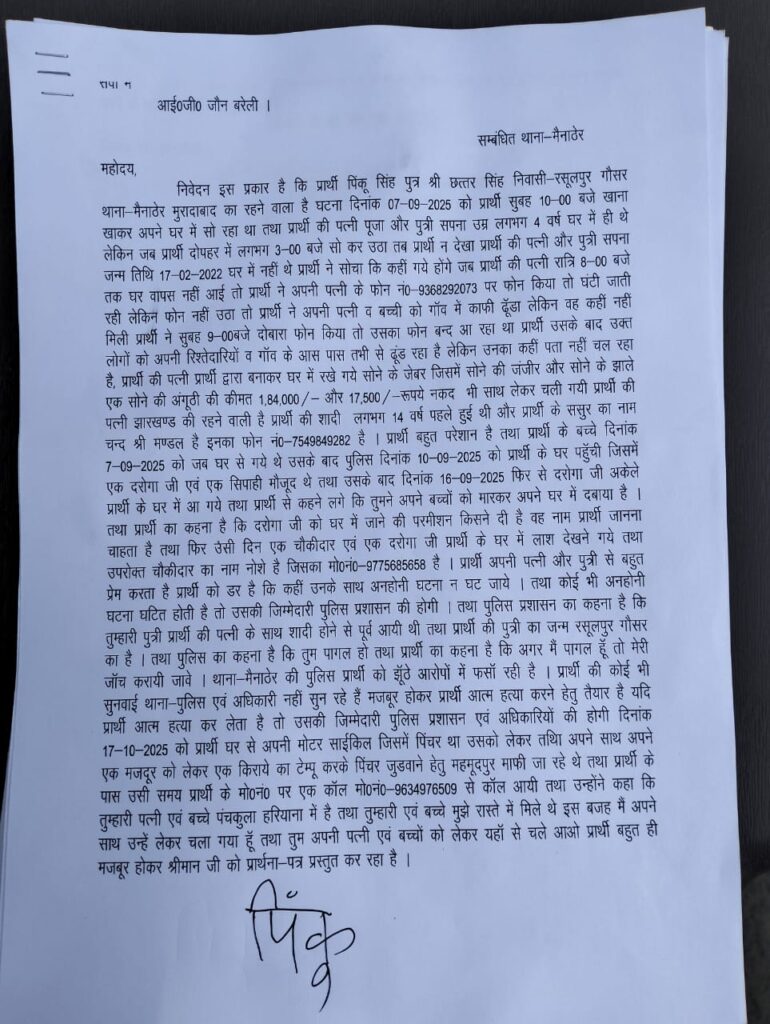 सेवा में
आई0जी0 जौन बरेली ।
सम्बंधित थाना–मैनाठेर
महोदय,
निवेदन इस प्रकार है कि प्रार्थी पिंकू सिंह पुत्र श्री छत्तर सिंह निवासी–रसूलपुर गौसर
थाना–मैनाठेर मुरादाबाद का रहने वाला है घटना दिनांक 07-09-2025 को प्रार्थी सुबह 10-00 बजे खाना
खाकर अपने घर में सो रहा था तथा प्रार्थी की पत्नी पूजा और पुत्री सपना उम्र लगभग 4 वर्ष घर में ही थे
लेकिन जब प्रार्थी दोपहर में लगभग 3-00 बजे सो कर उठा तब प्रार्थी न देखा प्रार्थी की पत्नी और पुत्री सपना
जन्म तिथि 17-02-2022 घर में नहीं थे प्रार्थी ने सोचा कि कहीं गये होंगे जब प्रार्थी की पत्नी रात्रि 8-00 बजे
तक घर वापस नहीं आई तो प्रार्थी ने अपनी पत्नी के फोन नं0-9368292073 पर फोन किया तो घंटी जाती
रही लेकिन फोन नहीं उठा तो प्रार्थी ने अपनी पत्नी व बच्ची को गॉव में काफी ढूँडा लेकिन वह कहीं नहीं
मिली प्रार्थी ने सुबह 9-00बजे दोबारा फोन किया तो उसका फोन बन्द आ रहा था प्रार्थी उसके बाद उक्त
लोगों को अपनी रिश्तेदारियों व गॉव के आस पास तभी से ढूंड रहा है लेकिन उनका कहीं पता नहीं चल रहा
है, प्रार्थी की पत्नी प्रार्थी द्वारा बनाकर घर में रखे गये सोने के जेबर जिसमें सोने की जंजीर और सोने के झाले
एक सोने की अंगूठी की कीमत 1,84,000/- और 17,500/-रूपये नकद भी साथ लेकर चली गयी प्रार्थी की
पत्नी झारखण्ड की रहने वाली है प्रार्थी की शादी लगभग 14 वर्ष पहले हुई थी और प्रार्थी के ससुर का नाम
चन्द श्री मण्डल है इनका फोन नं0-7549849282 है । प्रार्थी बहुत परेशान है तथा प्रार्थी के बच्चे दिनांक
7-09-2025 को जब घर से गये थे उसके बाद पुलिस दिनांक 10-09-2025 को प्रार्थी के घर पहुँची जिसमें
एक दरोगा जी एवं एक सिपाही मौजूद थे तथा उसके बाद दिनांक 16-09-2025 फिर से दरोगा जी अकेले
प्रार्थी के घर में आ गये तथा प्रार्थी से कहने लगे कि तुमने अपने बच्चों को मारकर अपने घर में दबाया है ।
तथा प्रार्थी का कहना है कि दरोगा जी को घर में जाने की परमीशन किसने दी है वह नाम प्रार्थी जानना
चाहता है तथा फिर उसी दिन एक चौकीदार एवं एक दरोगा जी प्रार्थी के घर में लाश देखने गये तथा
उपरोक्त चौकीदार का नाम नोशे है जिसका मो0नं0-9775685658 है । प्रार्थी अपनी पत्नी और पुत्री से बहुत
प्रेम करता है प्रार्थी को डर है कि कहीं उनके साथ अनहोनी घटना न घट जाये । तथा कोई भी अनहोनी
घटना घटित होती है तो उसकी जिम्मेदारी पुलिस प्रशासन की होगी । तथा पुलिस प्रशासन का कहना है कि
तुम्हारी पुत्री प्रार्थी की पत्नी के साथ शादी होने से पूर्व आयी थी तथा प्रार्थी की पुत्री का जन्म रसूलपुर गौसर
का है । तथा पुलिस का कहना है कि तुम पागल हो तथा प्रार्थी का कहना है कि अगर मैं पागल हूँ तो मेरी
जॉच करायी जावे । थाना–मैनाठेर की पुलिस प्रार्थी को झूँठे आरोपों में फसॉ रही है । प्रार्थी की कोई भी
सुनवाई थाना–पुलिस एवं अधिकारी नहीं सुन रहे हैं मजबूर होकर प्रार्थी आत्म हत्या करने हेतु तैयार है यदि
प्रार्थी आत्म हत्या कर लेता है तो उसकी जिम्मेदारी पुलिस प्रशासन एवं अधिकारियों की होगी दिनांक
17-10-2025 को प्रार्थी घर से अपनी मोटर साईकिल जिसमें पिंचर था उसको लेकर तथा अपने साथ अपने
एक मजदूर को लेकर एक किराये का टेम्पू करके पिंचर जुडवाने हेतु महमूदपुर माफी जा रहे थे तथा प्रार्थी के
पास उसी समय प्रार्थी के मो0नं0 पर एक कॉल मो0नं0-9634976509 से कॉल आयी तथा उन्होंने कहा कि
तुम्हारी पत्नी एवं बच्चे पंचकुला हरियाना में है तथा तुम्हारी एवं बच्चे मुझे रास्ते में मिले थे इस बजह मैं अपने
साथ उन्हें लेकर चला गया हूँ तथा तुम अपनी पत्नी एवं बच्चों को लेकर यहॉ से चले आओ प्रार्थी बहुत ही
मजबूर होकर श्रीमान जी को प्रार्थना-पत्र प्रस्तुत कर रहा है ।
पिंकू